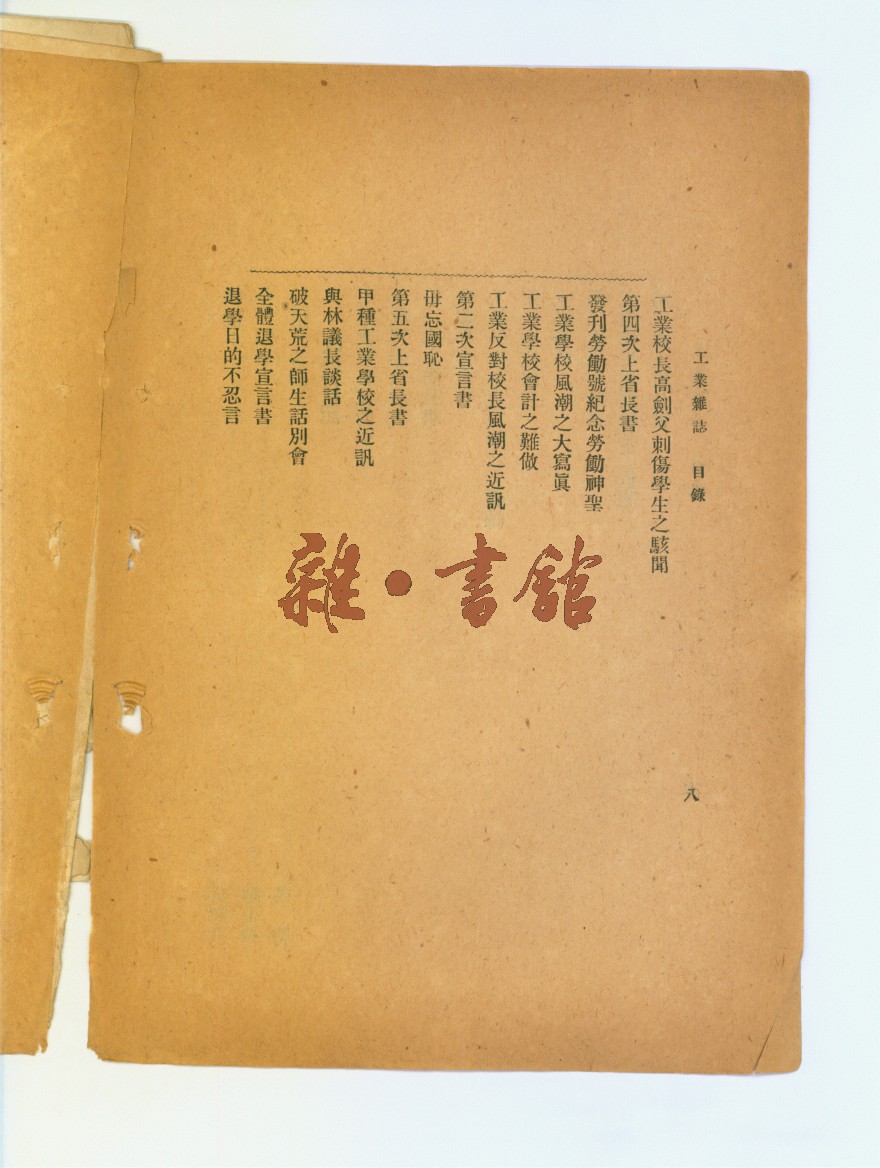 工業雜誌 目錄
八
工業校長高劍父刺傷學生之駭聞
第四次上省長書
發刊勞働號紀念勞働神聖
工業學校風潮之大寫眞
工業學校會計之難做
工業反對校長風潮之近訊
第二次宣言書
毋忘國恥
第五次上省長書
甲種工業學校之近訊
與林議長談話
破天荒之師生話別會
全體退學宣言書
退學日的不忍言
雜·書館